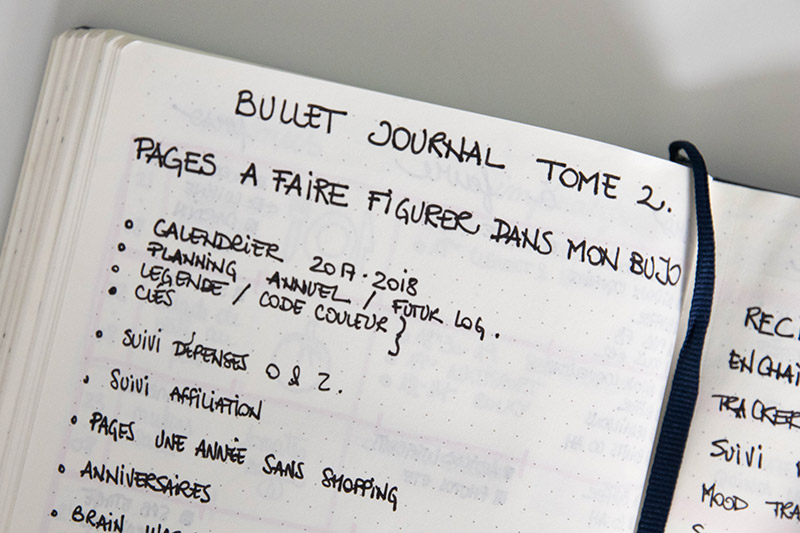 BULLET JOURNAL TOME 2.
PAGES A FAIRE FIGURER DANS MON BUJO
• CALENDRIER 2017-2018
• PLANNING ANNUEL / FUTUR LOG.
• LEGENDE / CODE COULEUR }
• CLÉS
• SUIVI DÉPENSES O & Z.
• SUIVI AFFILIATION
• PAGES UNE ANNÉE SANS SHOPPING
• ANNIVERSAIRES
• BRAIN
TRACKER
SUIVI
MOOD